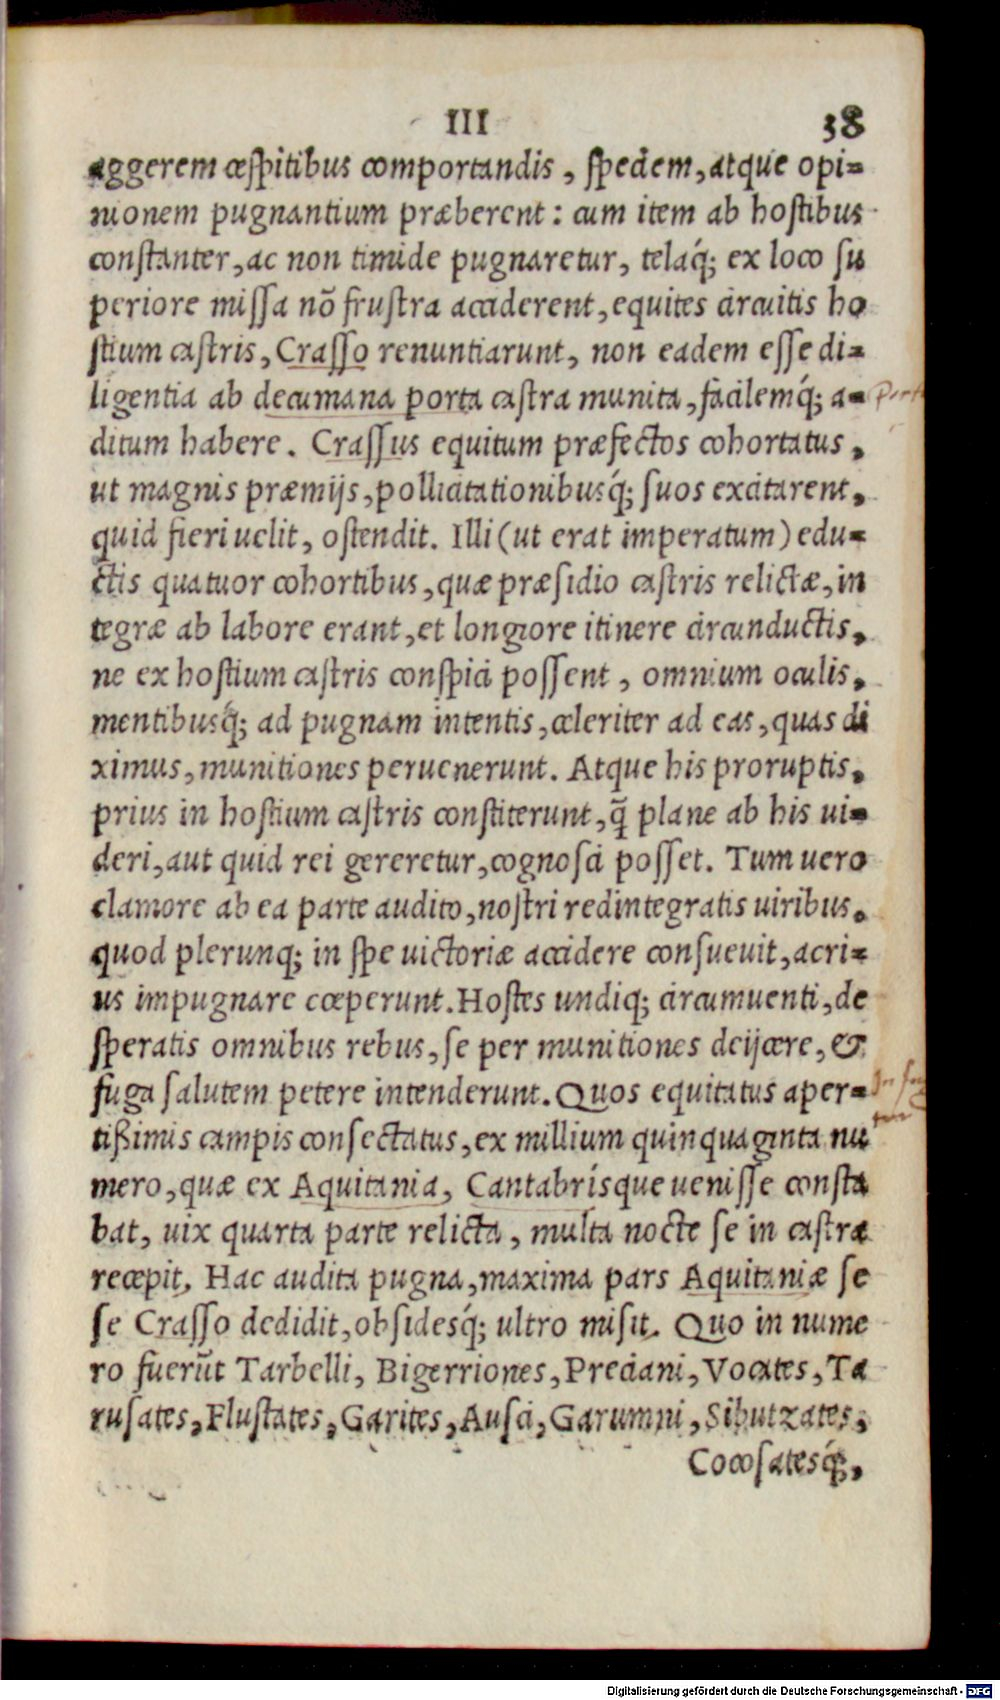 III 38
aggerem cespitibus comportandis, spedem, atque opi=
nionem pugnantium præberent: cum item ab hostibus
constanter, ac non timide pugnaretur, telaq́; ex loco su
periore missa nō frustra acciderent, equites circuitis ho
stium castris, Crasso renuntiarunt, non eadem esse di=
ligentia ab decumana porta castra munita, facilemq́; a=
ditum habere. Crassus equitum præfectos cohortatus,
ut magnis præmijs, pollicitationibusq́; suos excitarent,
quid fieri uelit, ostendit. Illi (ut erat imperatum) edu=
ctis quatuor cohortibus, quæ præsidio castris relictæ, in
tegræ ab labore erant, et longiore itinere circunductis,
ne ex hostium castris conspici possent, omnium oculis,
mentibusq́; ad pugnam intentis, celeriter ad eas, quas di
ximus, munitiones peruenerunt. Atque his proruptis,
prius in hostium castris constiterunt, q̃ plane ab his ui=
deri, aut quid rei gereretur, cognosci posset. Tum uero
clamore ab ea parte audito, nostri redintegratis uiribus,
quod plerunq; in spe uictoriæ accidere consueuit, acri=
us impugnare cœperunt. Hostes undiq; circumuenti, de
speratis omnibus rebus, se per munitiones deijcere, &
fuga salutem petere intenderunt. Quos equitatus aper=
tißimis campis consectatus, ex millium quinquaginta nu
mero, quæ ex Aquitania, Cantabrísque uenisse consta
bat, uix quarta parte relicta, multa nocte se in castra
recepit. Hac audita pugna, maxima pars Aquitaniæ se
se Crasso dedidit, obsidesq́; ultro misit. Quo in nume
ro fuerūt Tarbelli, Bigerriones, Preciani, Vocates, Ta
rusates, Flustates, Garites, Ausci, Garumni, Sibutzates,
Cocosatesq́;,
Digitalisierung gefördert durch die Deutsche Forschungsgemeinschaft - DFG